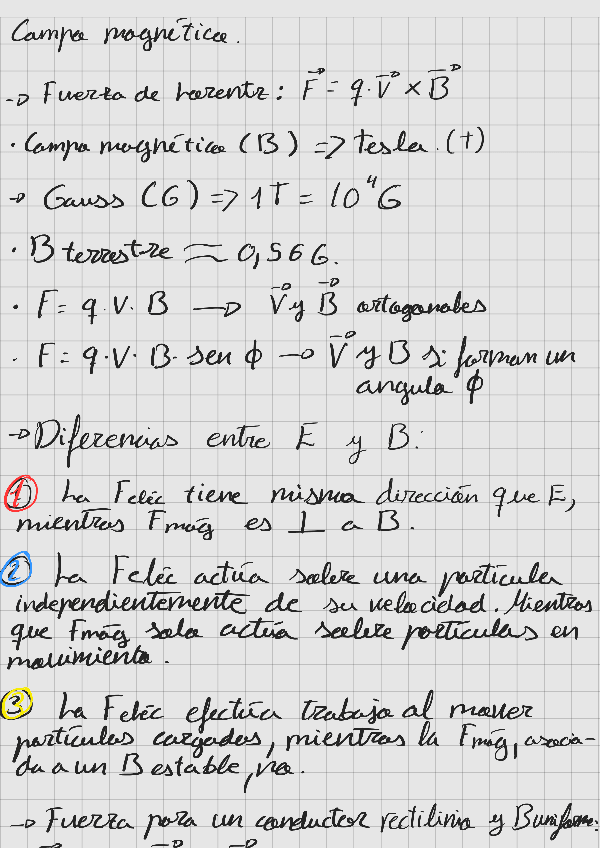 Campo magnético.
→ Fuerza de Lorentz: F⃗ = q·V⃗ × B⃗
· Campo magnético (B) => tesla (T)
→ Gauss (G) => 1T = 10⁴G
· B terrestre ≈ 0,5 G G.
· F = q·V·B → V⃗ y B⃗ ortogonales
· F = q·V·B·sen ϕ → V⃗ y B si forman un
angulo ϕ
→ Diferencias entre E y B:
① La Feléc tiene misma dirección que E,
mientras Fmág es ⊥ a B.
② La Feléc actúa sobre una partícula
independientemente de su velocidad. Mientras
que Fmág solo actúa sobre partículas en
movimiento.
③ La Feléc efectúa trabajo al mover
partículas cargadas, mientras la Fmág, asocia-
da a un B estable, no.
→ Fuerza para un conductor rectilinio y B uniforme: